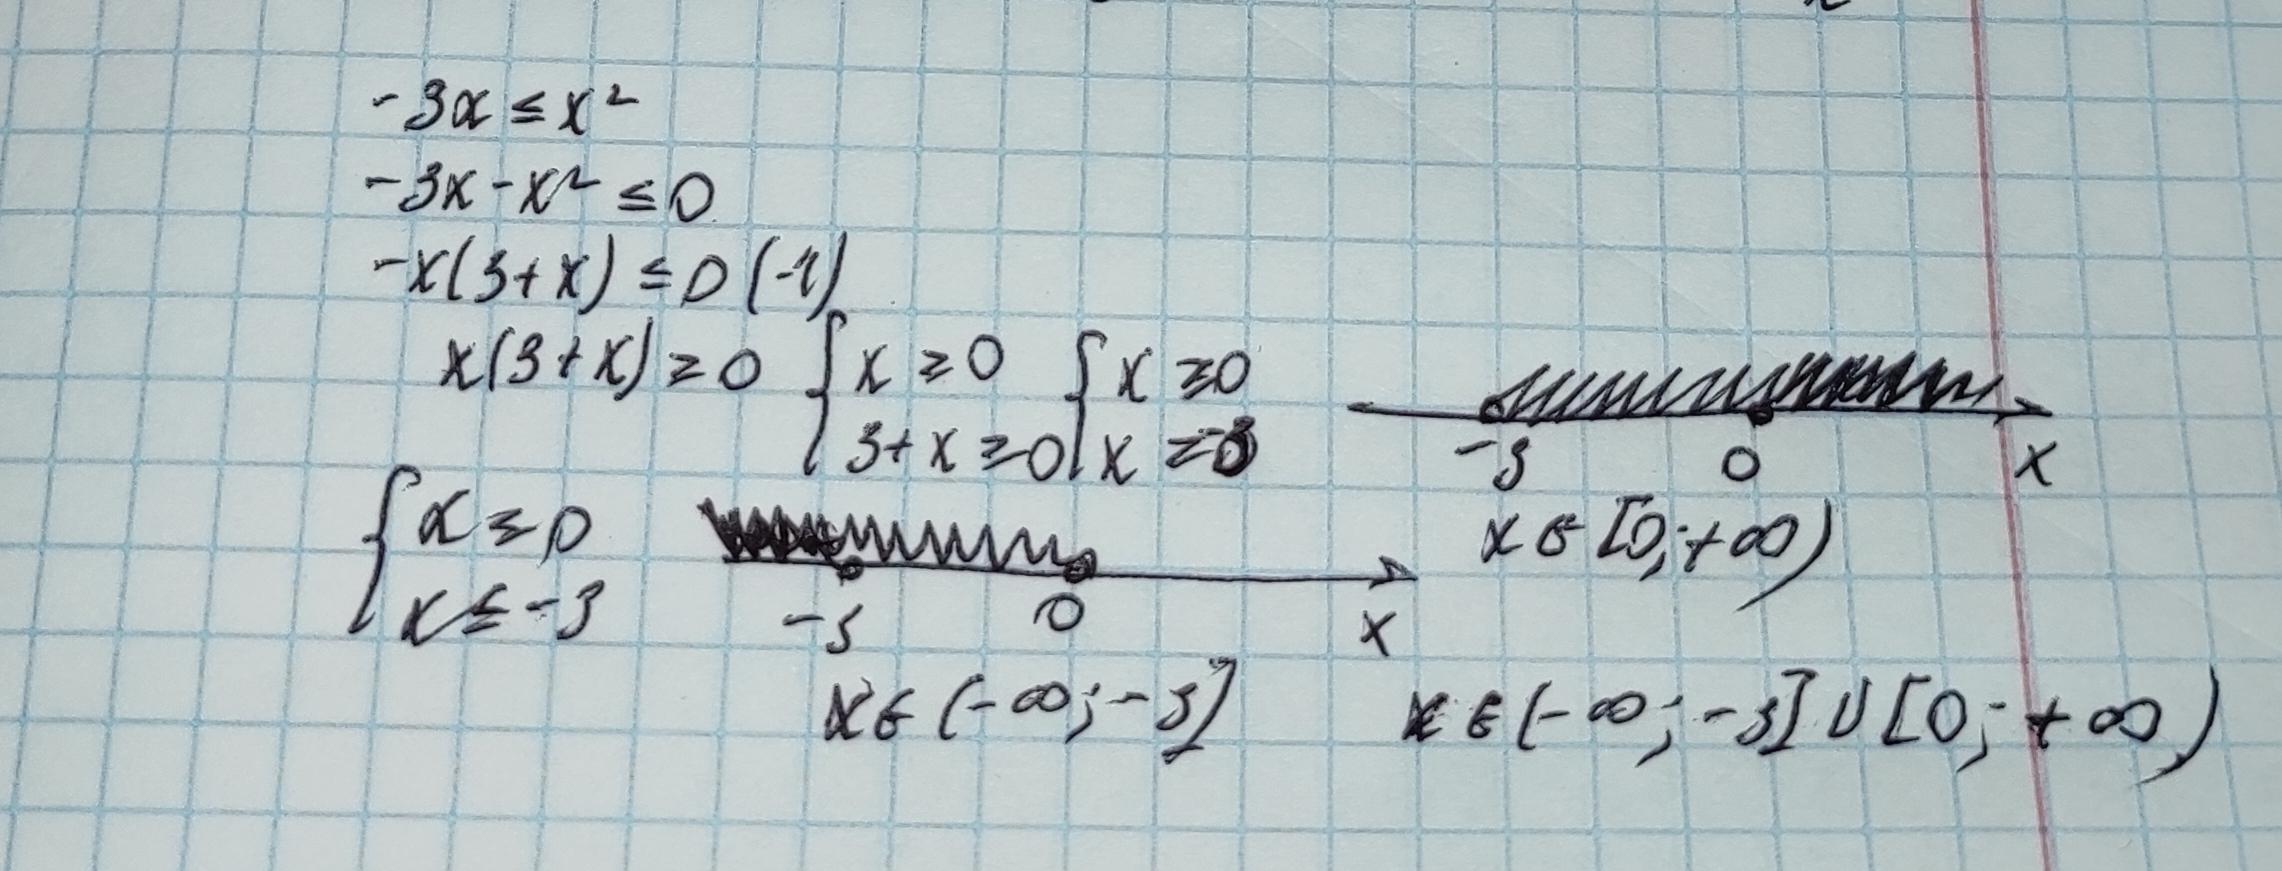 -3x ≤ x²
-3x - x² ≤ 0
-x(3+x) ≤ 0 (-1)
x(3+x) ≥ 0 { x ≥ 0 { x ≥ 0
3+x ≥ 0 x ≥ -3
-3 0 x
x ∈ [0; +∞)
{ x ≤ 0
x ≤ -3
-3 0 x
x ∈ (-∞; -3] x ∈ (-∞; -3] U [0; +∞)